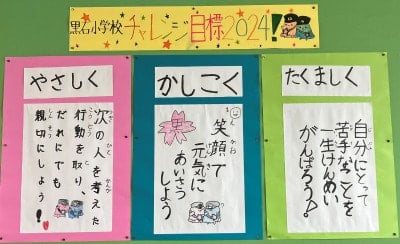 黒石小学校 チャレンジ目標2024!
やさしく
次の人を考えた
行動を取り、
だれにでも
親切にしよう!
かしこく
笑顔で
元気に
あいさつ
しよう
たくましく
自分にとって
苦手なことを
一生けんめい
がんばろう!